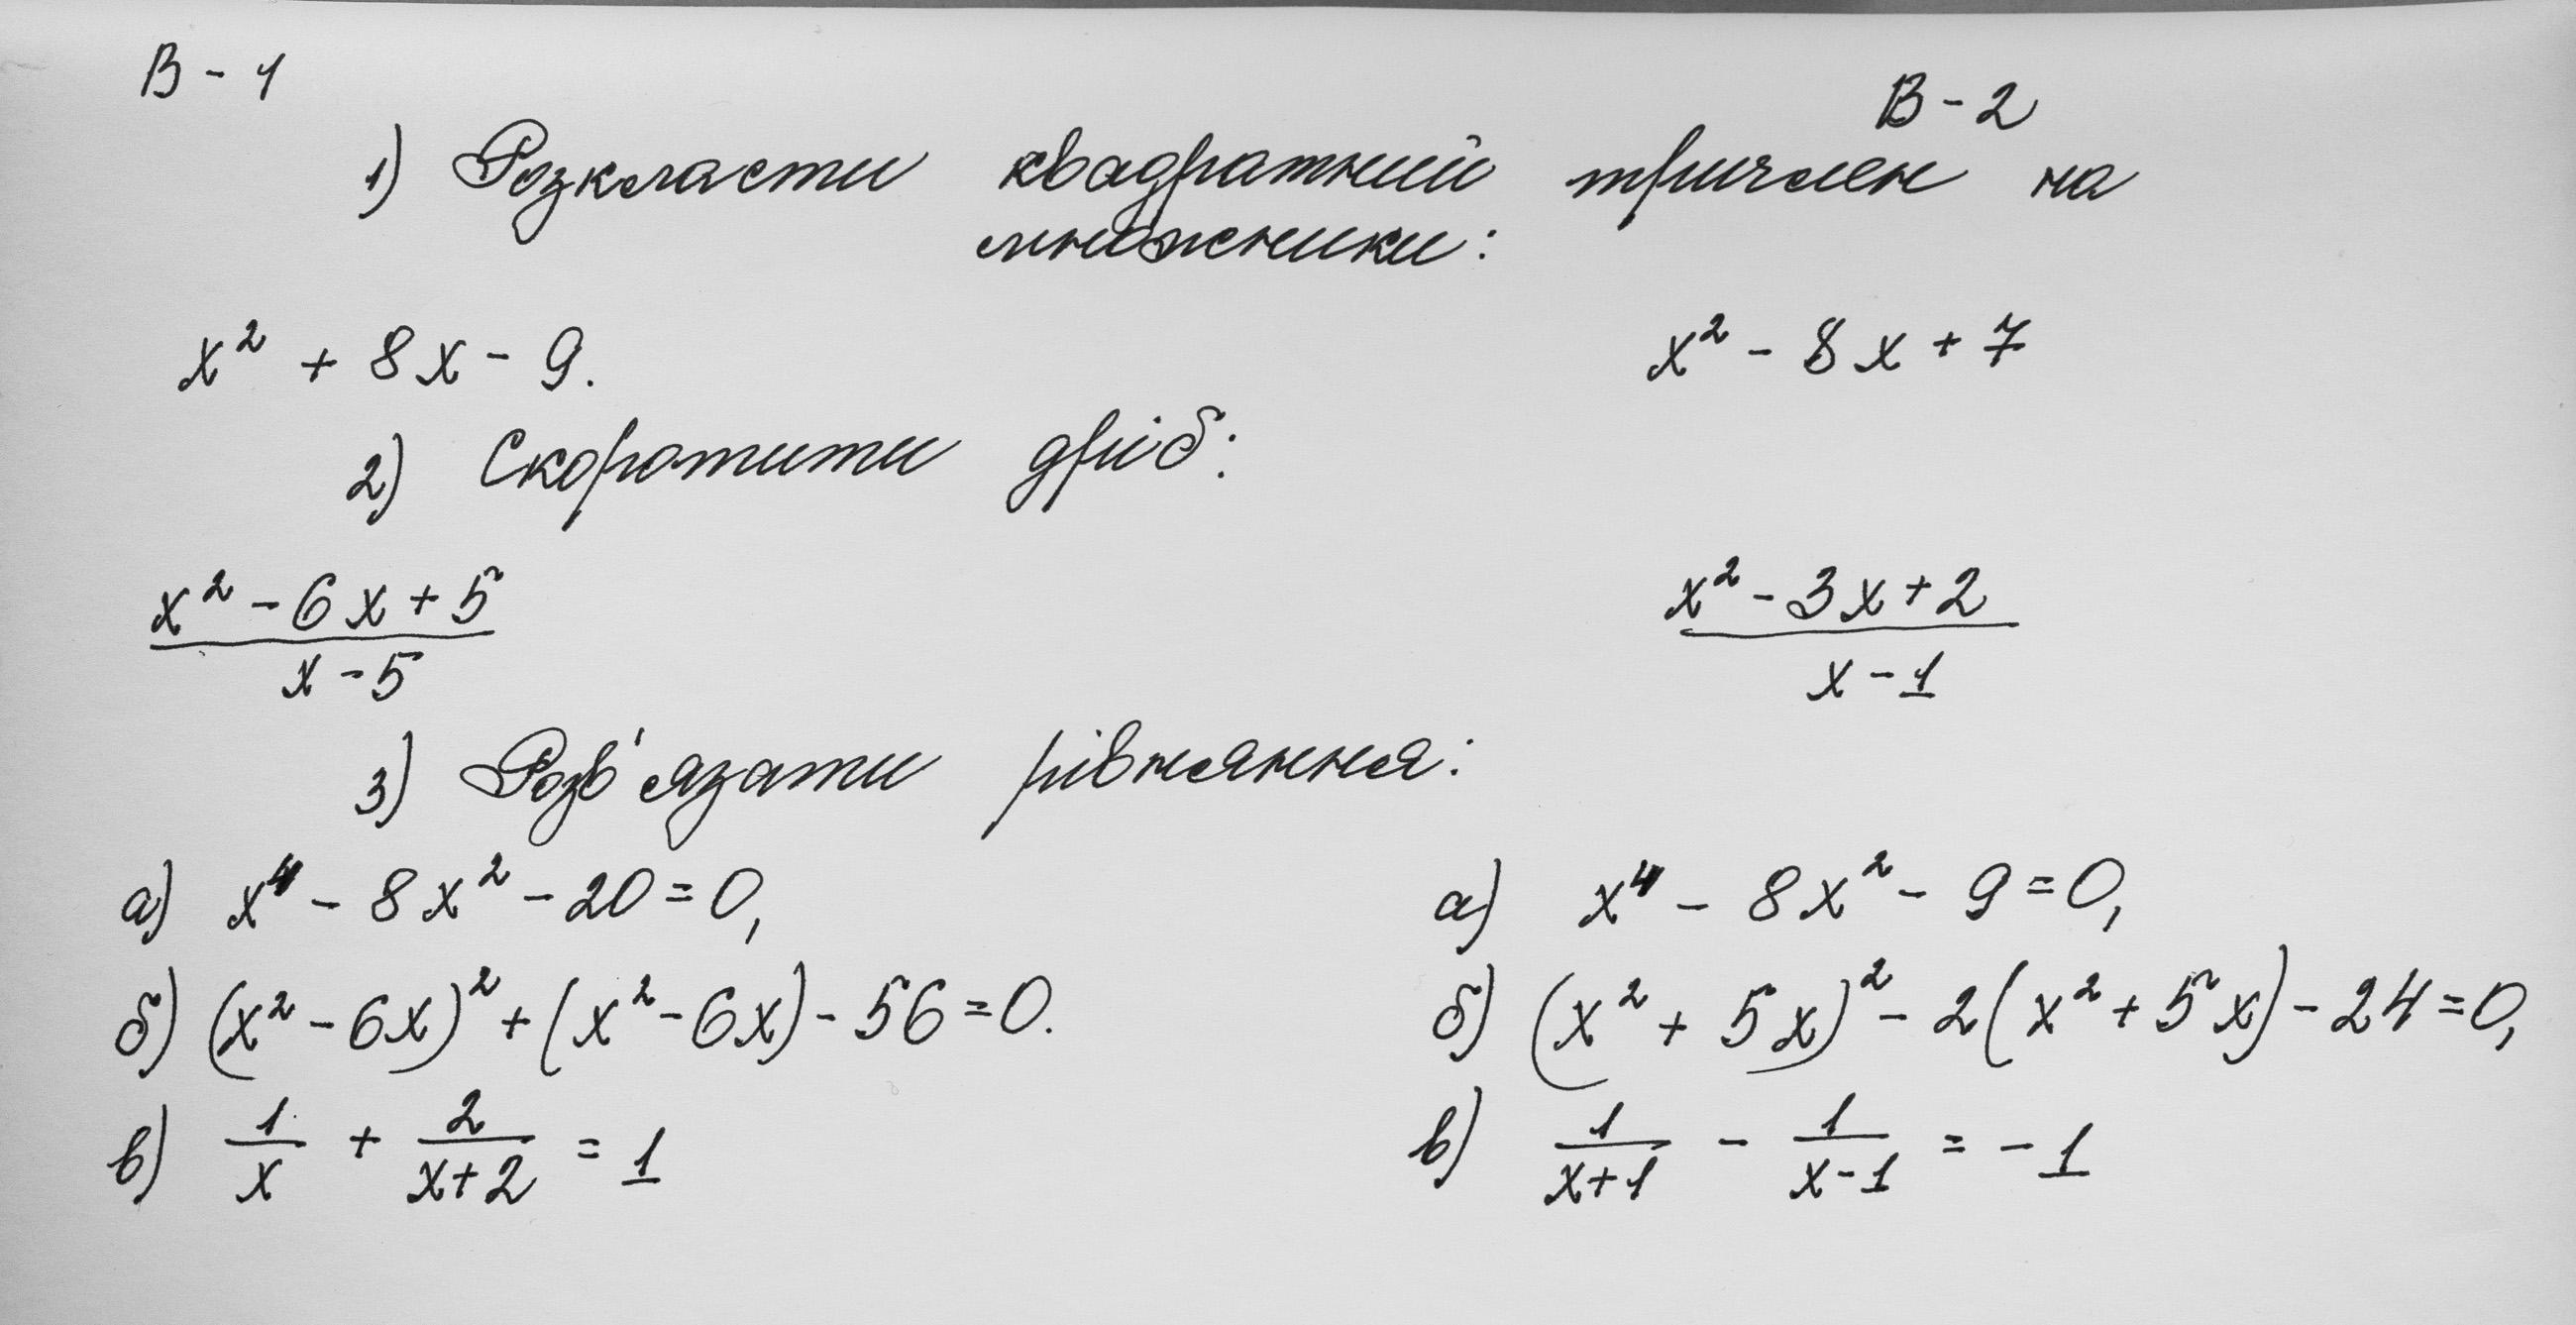 В - 1
В - 2
1) Розкласти квадратний тричлен на
множники:
x² + 8x - 9.
x² - 8x + 7
2) Скоротити дріб:
x² - 6x + 5
x - 5
x² - 3x + 2
x - 1
3) Розв'язати рівняння:
а) x⁴ - 8x² - 20 = 0,
а) x⁴ - 8x² - 9 = 0,
б) (x² - 6x)² + (x² - 6x) - 56 = 0.
б) (x² + 5x)² - 2(x² + 5x) - 24 = 0,
в) 1/x + 2/(x+2) = 1
в) 1/(x+1) - 1/(x-1) = -1